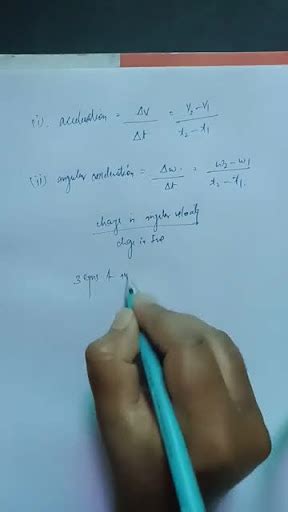 (i). acceleration = Δv/Δt = v₂-v₁/t₂-t₁
(ii) angular acceleration = Δω/Δt = ω₂-ω₁/t₂-t₁
change in angular velocity
change in
3 eqns